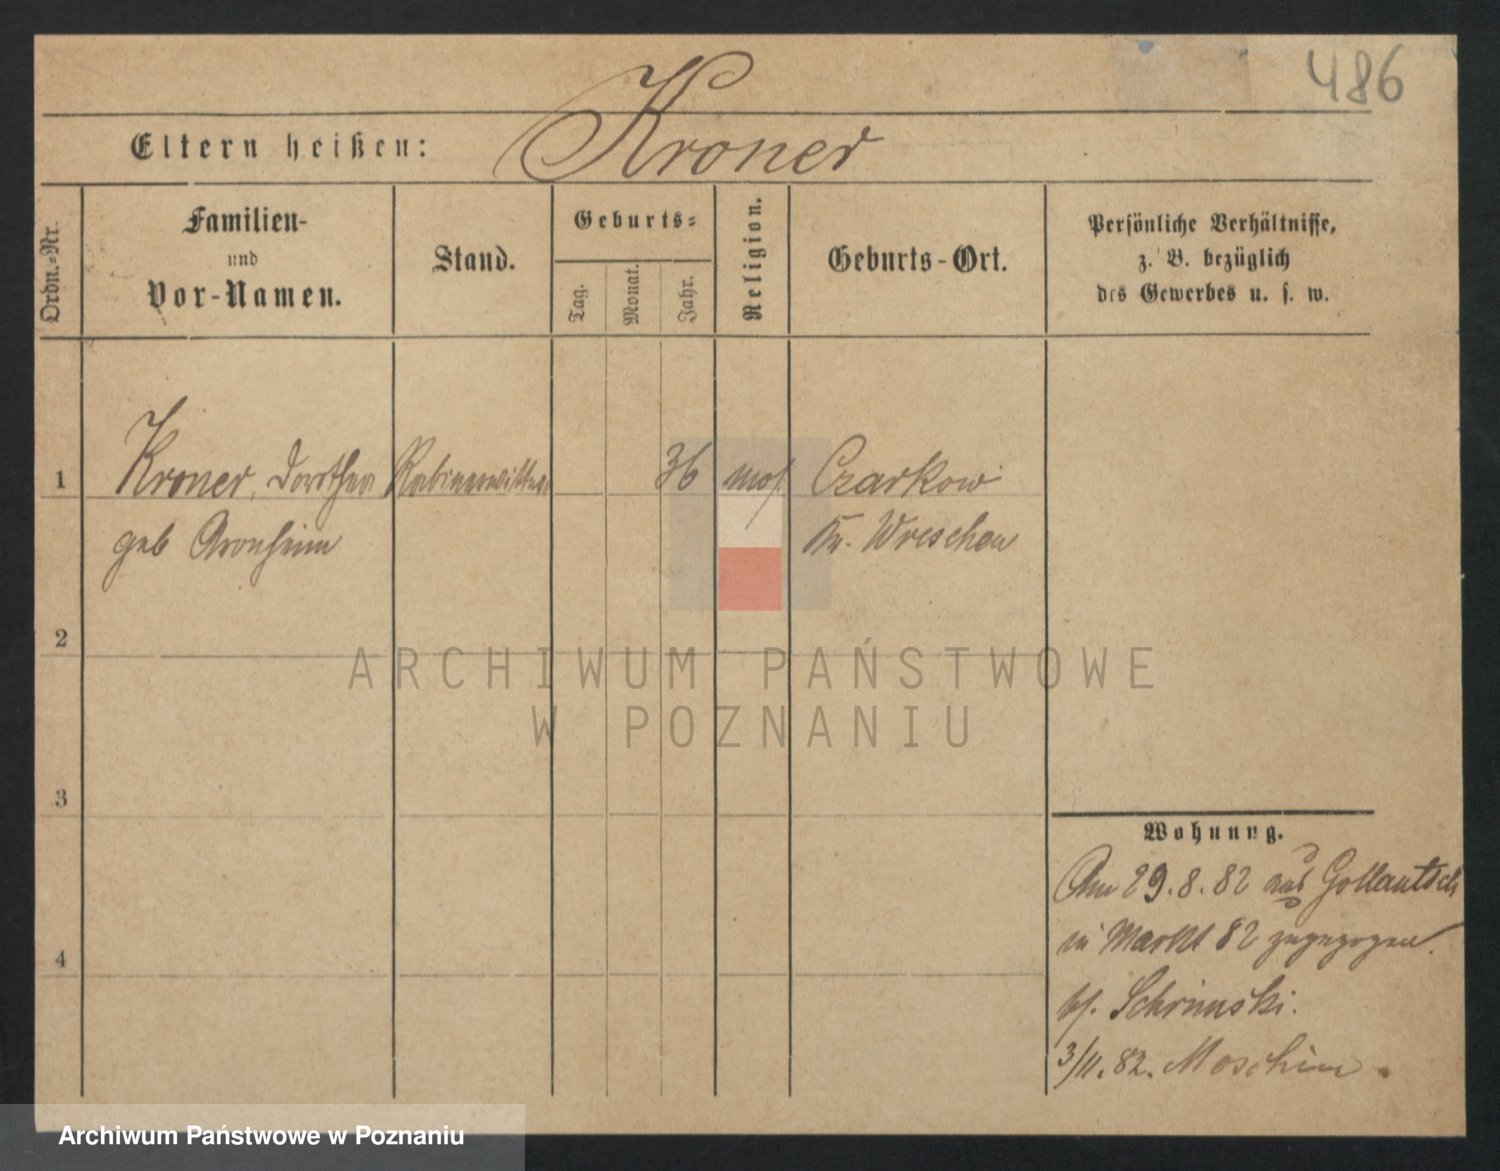 486
Eltern heißen: Kroner
Ordn.-Nr.
Familien-
und
Vor-Namen.
Stand.
Geburts-
Tag.
Monat.
Jahr.
Religion.
Geburts-Ort.
Persönliche Verhältnisse,
z. B. bezüglich
des Gewerbes u. s. w.
1 Kroner, Dorothea Rabinerwittwe 36 mos. Czarkow
geb Aronheim Kr. Wreschen
2
ARCHIWUM PAŃSTWOWE
W POZNANIU
3
Wohnung.
Am 29.8.82 aus Gollantsch
in Markt 82 zugezogen.
4
Schrimski.
3/11. 82. Moschin
Archiwum Państwowe w Poznaniu